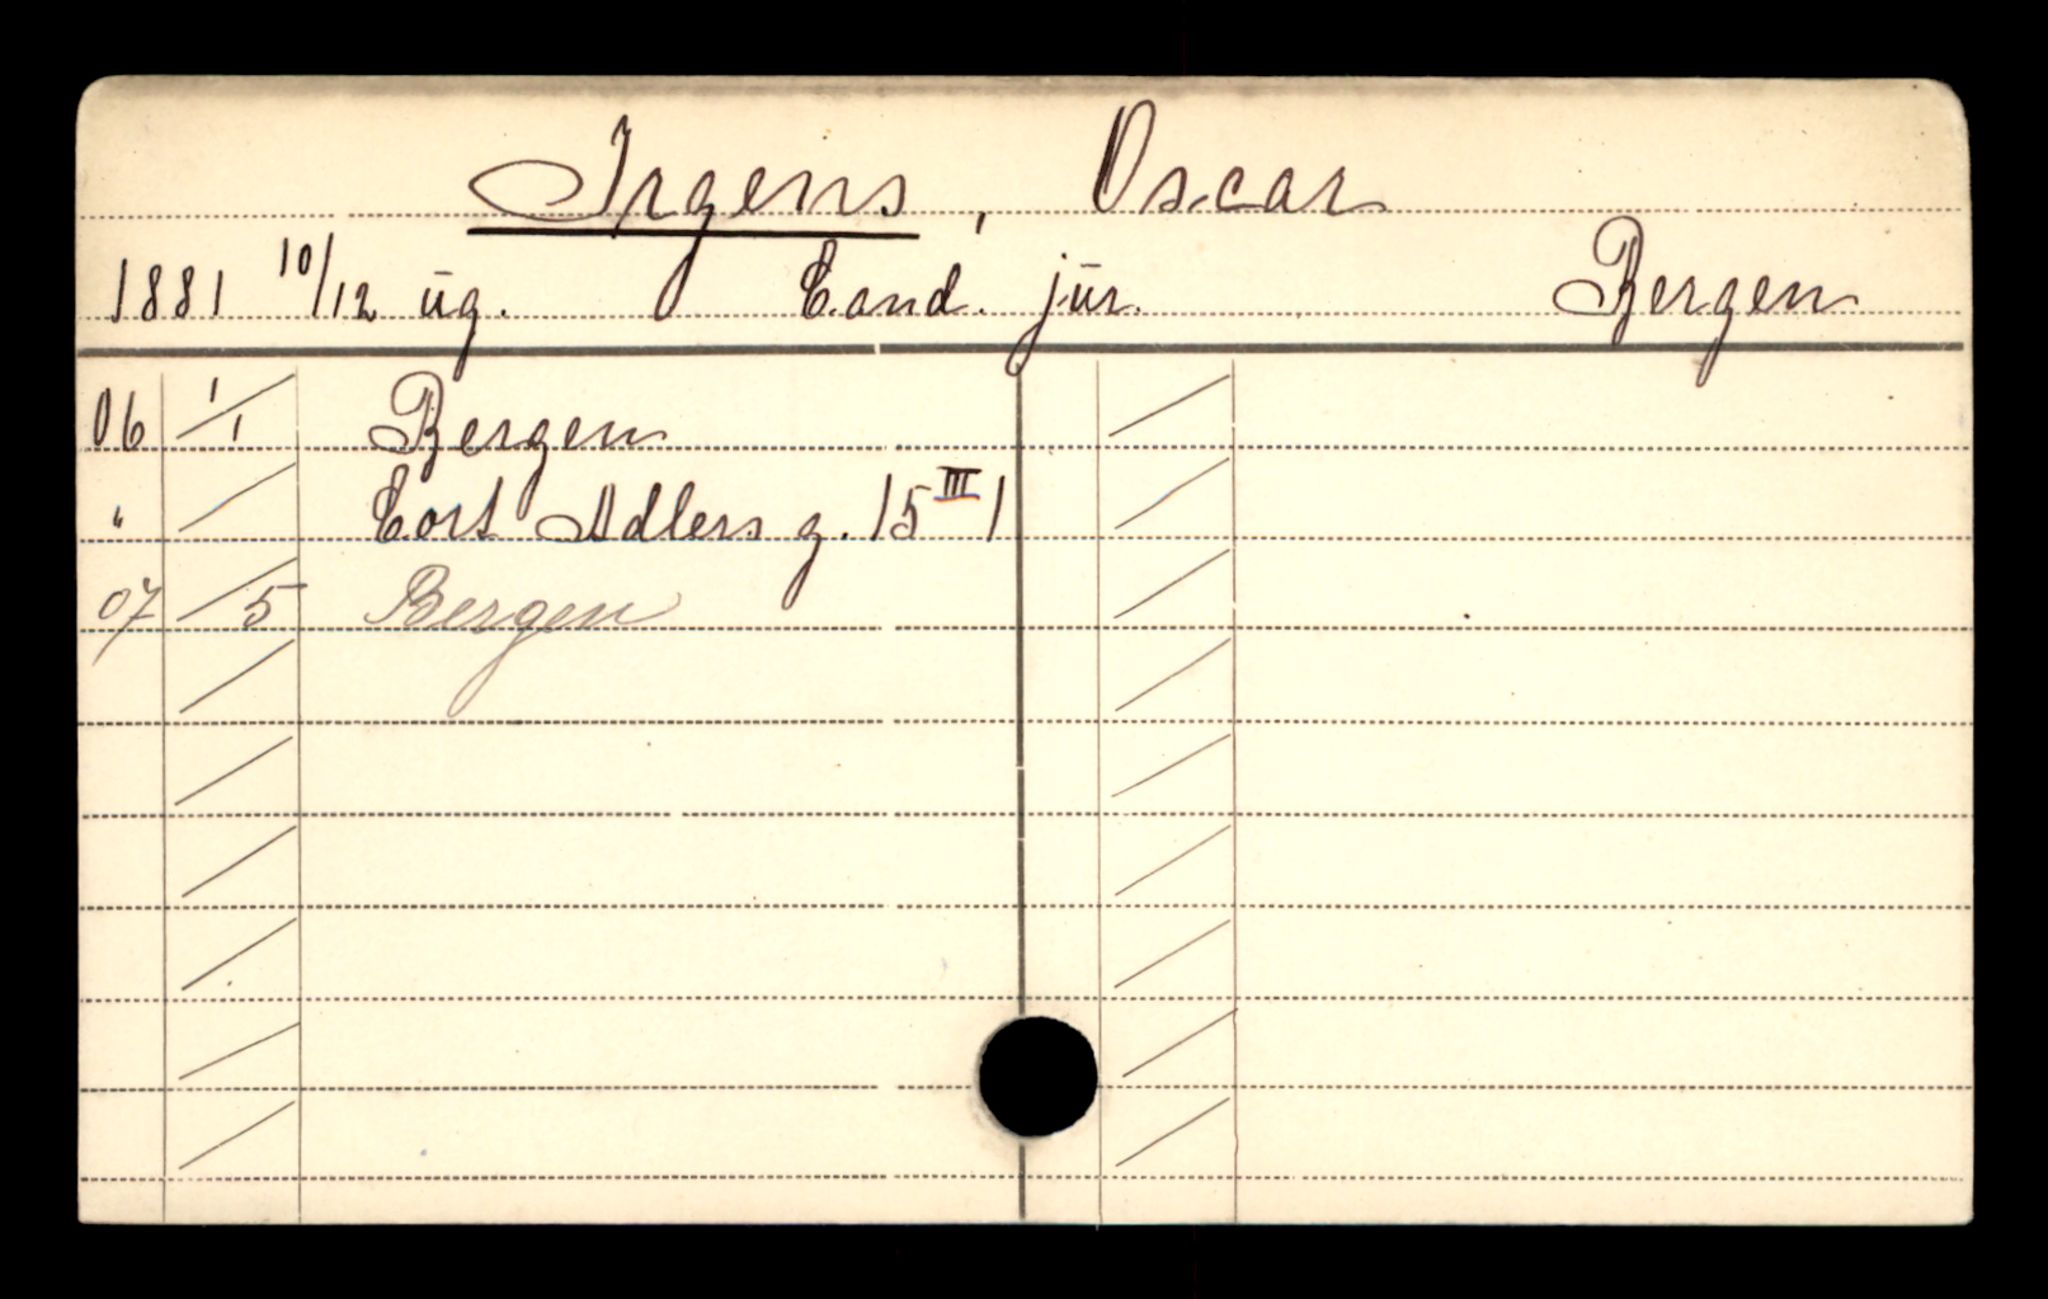 Irgens, Oscar
1881 10/12 ūg. Cand. jūr. Bergen
06 1/1 Bergen
" Cort Adlers g. 15 III 1
07 /5 Bergen